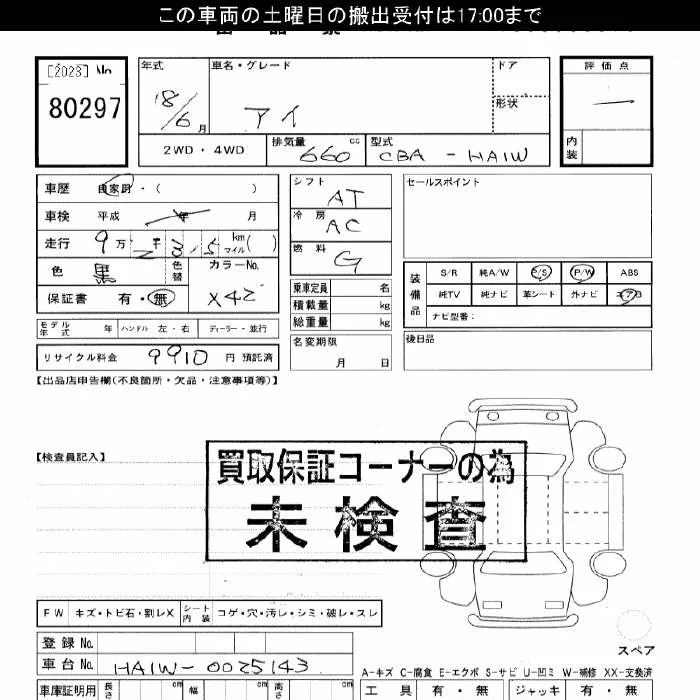 この車両の土曜日の搬出受付は17:00まで
[2023] No.
80297
年式
18/6 月
車名・グレード
アイ
ドア
形状
評価点
―
内装
2WD・4WD
排気量 660 cc
型式 CBA - HA1W
車歴 自家用・( )
車検 平成 年 月
走行 9万 2千 3.5 km マイル( )
色 黒 色替
カラーNo. X42
保証書 有・無
モデル年式 年 ハンドル 左・右 ディーラー・並行
リサイクル料金 9910 円 預託済
シフト AT
冷房 AC
燃料 G
乗車定員 名
積載量 kg
総重量 kg
名変期限 月 日
セールスポイント
装備品
S/R 純A/W P/S P/W ABS
純TV 純ナビ 革シート 外ナビ エアB
ナビ型番:
後日品
【出品店申告欄(不良箇所・欠品・注意事項等)】
【検査員記入】
買取保証コーナーの為
未検査
FW キズ・トビ石・割レX シート内装 コゲ・穴・汚レ・シミ・破レ・スレ
スペア
登録No.
車台No. HA1W-0025143
A-キズ C-腐食 E-エクボ S-サビ U-凹ミ W-補修 XX-交換済
車庫証明用 長さ cm 幅 cm 高さ cm
工具 有・無 ジャッキ 有・無